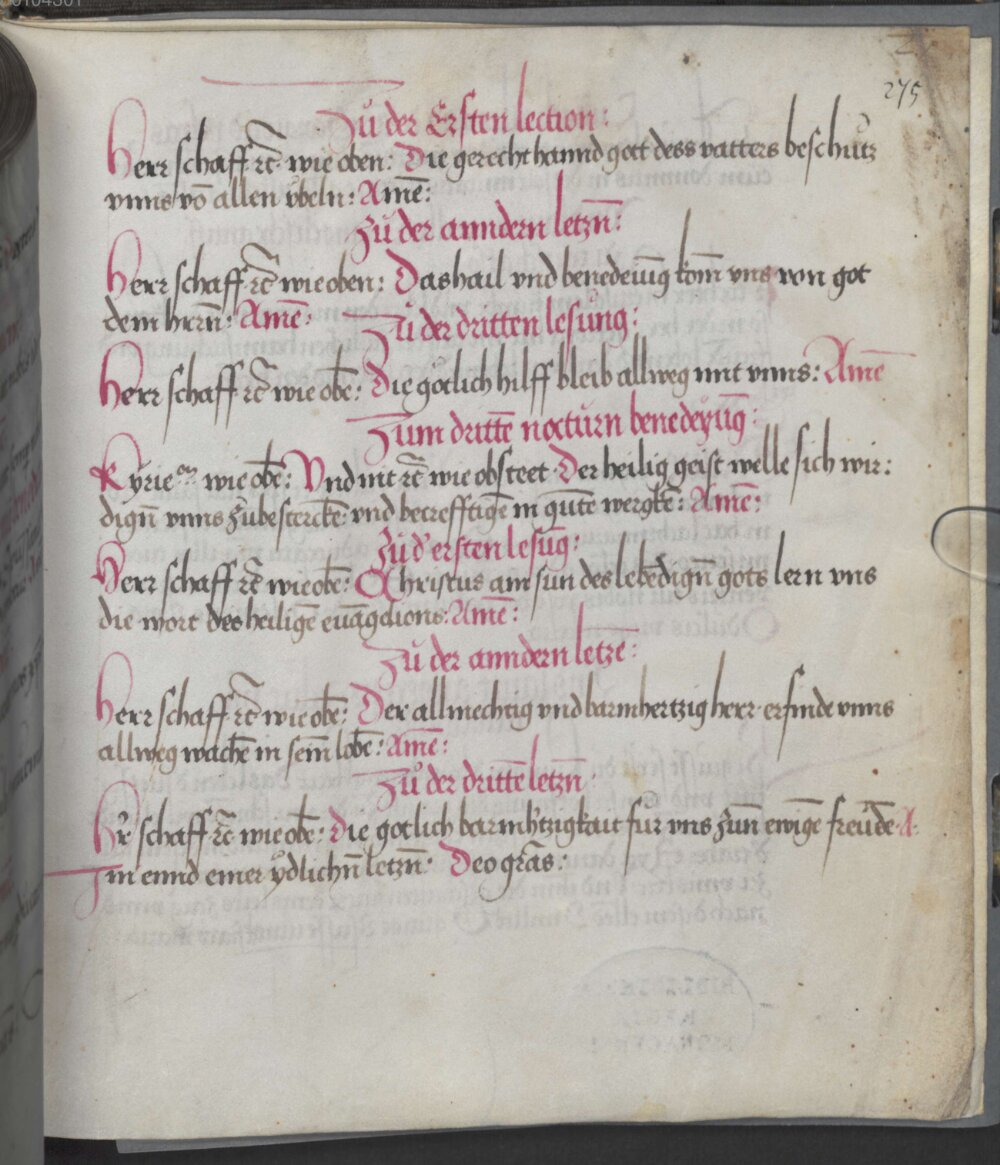 275
Zů der Ersten lection:
Herr schaff ꝛc̄ wie oben: Die gerecht hannd got dess vatters beschůtz
vnns vō allen v̈beln: Amē:
Zů der anndern letzn̄:
Herr schaff ꝛc̄ wie oben: Das hail vnd benedeiūg kom̄ vns von got
dem hern̄: Amē:
Zů der dritten lesŭng:
Herr schaff ꝛc̄ wie obē: Die gotlich hilff bleib allweg mit vnns: Amē
Zum drittē noctŭrn benedeyŭḡ:
Kyrieᵒⁿ wie obē: Vnd nit ꝛc̄ wie obsteet Der heilig geist welle sich wir:
dign̄ vnns zůbesterckē vnd becrefftigē in gůtē wergkē: Amē:
Zů d' ersten lesŭḡ:
Herr schaff ꝛc̄ wie obē: Christus ain sun des lebēdign̄ gots lern vns
die wort des heiligē euāgelions: Amē:
Zů der anndern letzē:
Herr schaff ꝛc̄ wie obē: Der allmechtig vnd barmhertzig herr erfinde vnns
allweg wachē in seim̄ lobē: Amē:
Zů der drittē letzn̄
H'r schaff ꝛc̄ wie obē: Die gotlich barmh'tzigkait fŭr vns zŭn̄ ewigē freŭdē A
Im ennd einer ydlichn̄ letzn̄: Deo grās: